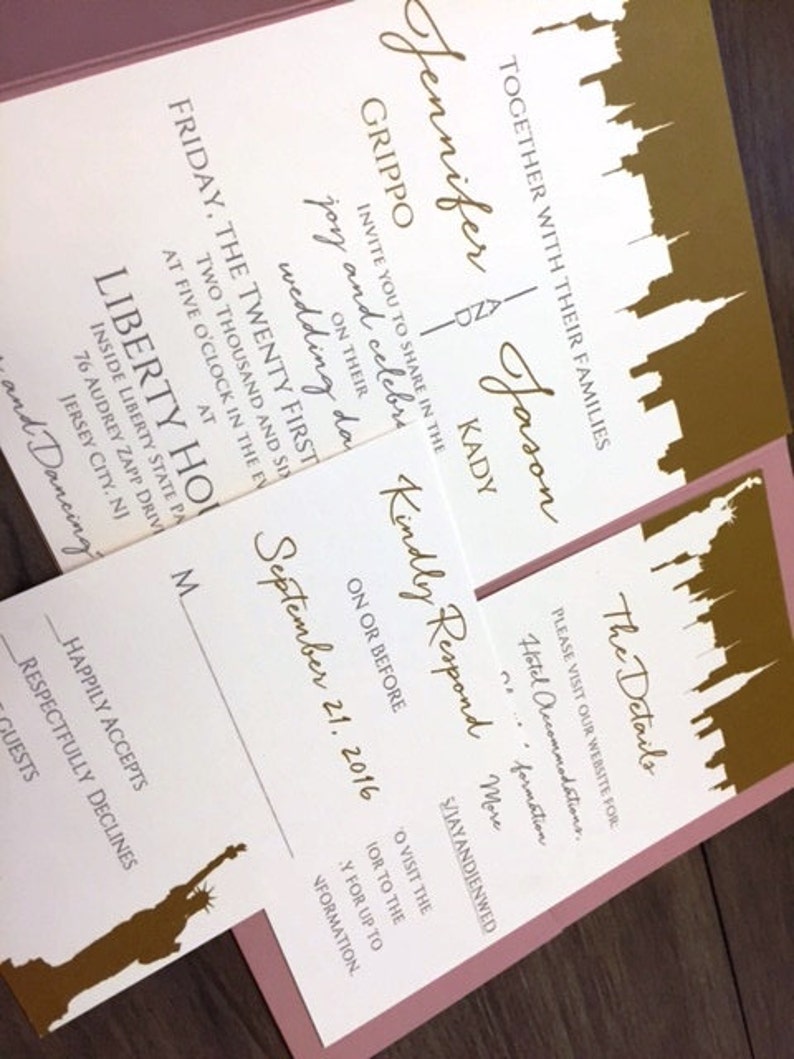 TOGETHER WITH THEIR FAMILIES
Jennifer AND Jason
GRIPPO KADY
INVITE YOU TO SHARE IN THE
joy and celebr
ON THEIR
wedding da
FRIDAY, THE TWENTY FIRST
TWO THOUSAND AND SIX
AT FIVE O'CLOCK IN THE EV
AT
LIBERTY HOU
INSIDE LIBERTY STATE PA
76 AUDREY ZAPP DRIV
JERSEY CITY, NJ
and Dancing
Kindly Respond
ON OR BEFORE
September 21, 2016
M
HAPPILY ACCEPTS
RESPECTFULLY DECLINES
GUESTS
The Details
PLEASE VISIT OUR WEBSITE FOR:
Hotel Accommodations,
formation
More
S/JAYANDJENWED
O VISIT THE
IOR TO THE
Y FOR UP TO
NFORMATION.